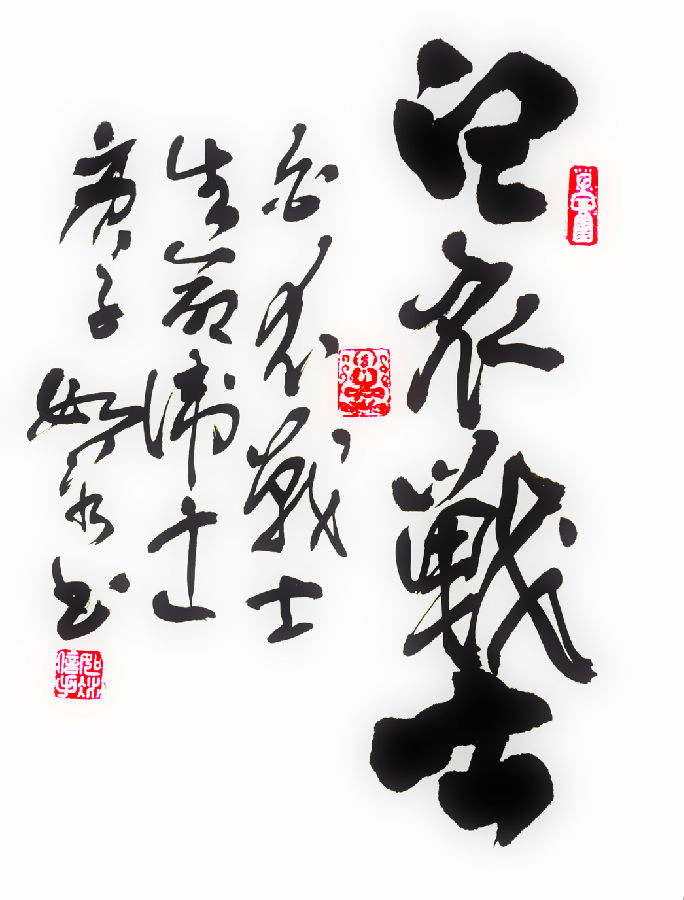 白衣戰士
白衣戰士
生命衛士
庚子
书